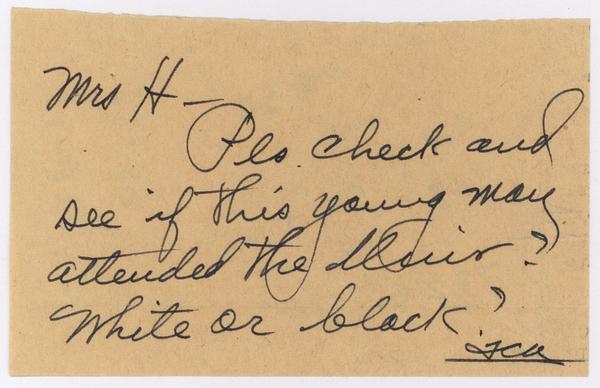 Mrs H –
Pls. check and
see if this young man
attended the Univ?
White or black?